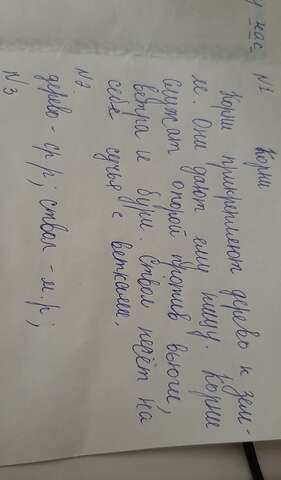 у нас
№1
Корни
Корни прикрепляют дерево к зем-
ле. Они дают ему пищу. Корни
служат опорой против вьюги,
ветра и бури. Ствол несёт на
себе сучья с ветками.
№2
дерево - ср.р; ствол - м.р;
№3